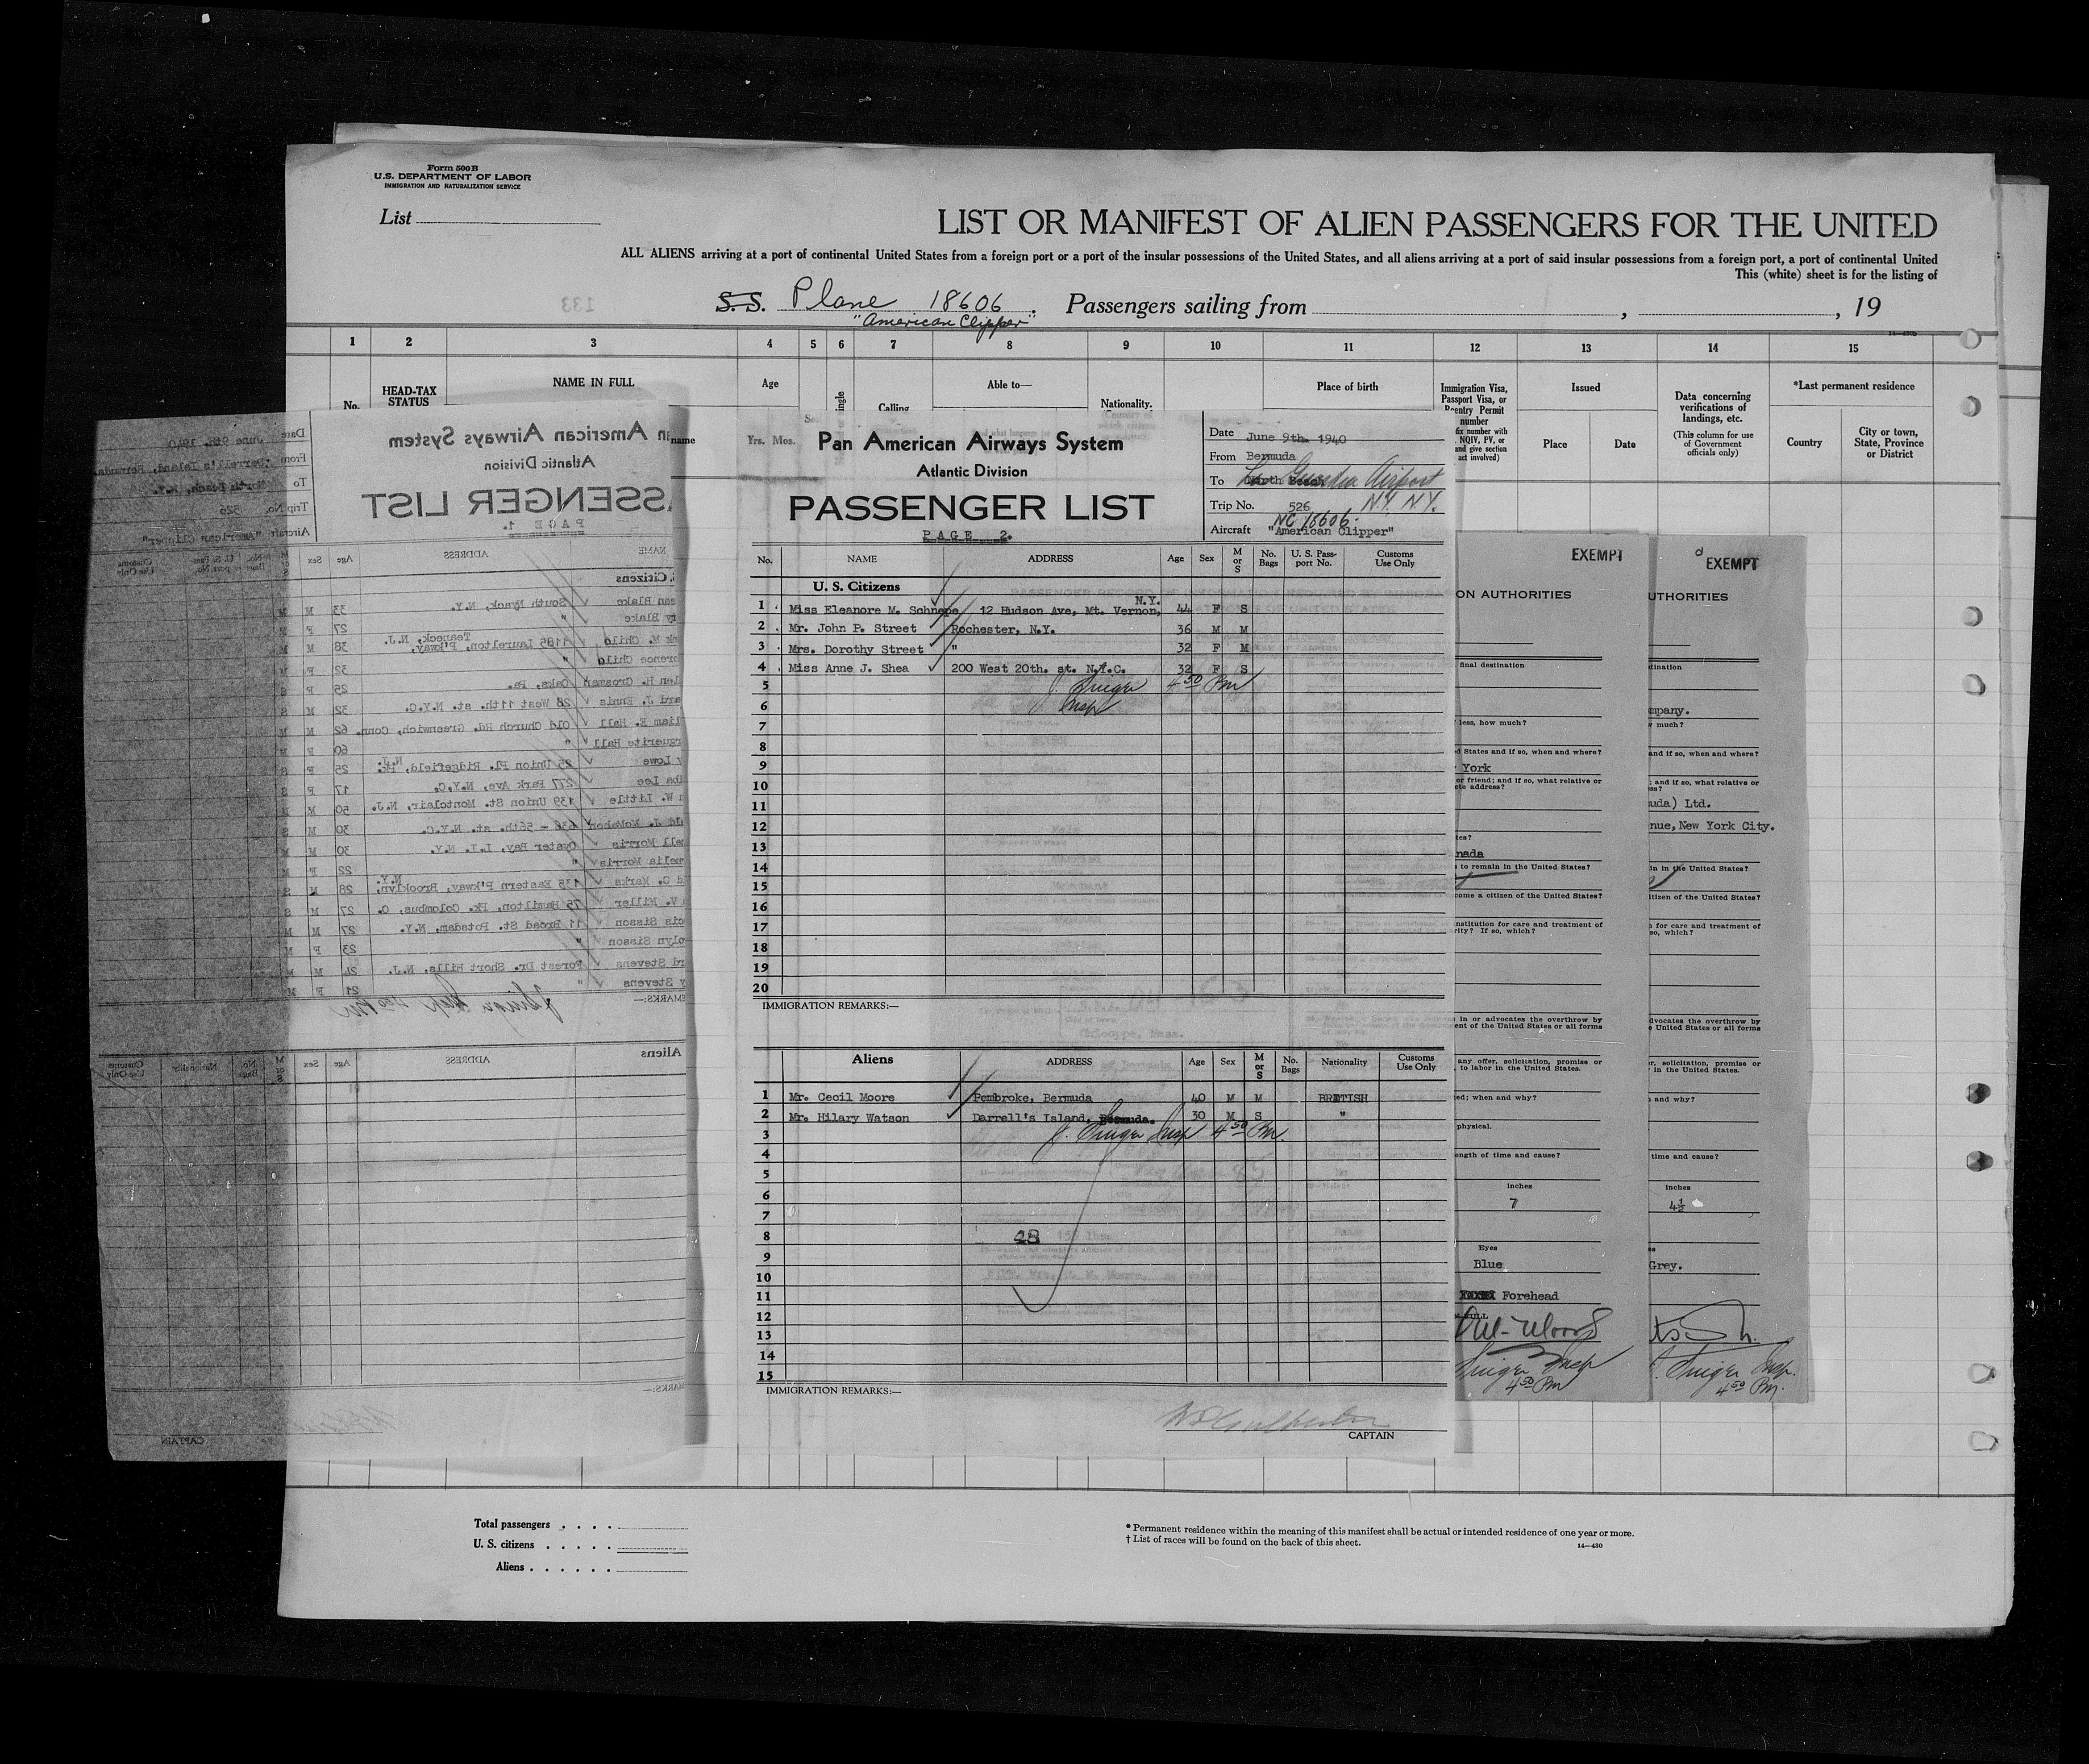 Form 500B
U.S. DEPARTMENT OF LABOR
IMMIGRATION AND NATURALIZATION SERVICE
List
LIST OR MANIFEST OF ALIEN PASSENGERS FOR THE UNITED
ALL ALIENS arriving at a port of continental United States from a foreign port or a port of the insular possessions of the United States, and all aliens arriving at a port of said insular possessions from a foreign port, a port of continental United
This (white) sheet is for the listing of
S.S. Plane 18606. Passengers sailing from , , 19
"American Clipper"
133
1 2 3 4 5 6 7 8 9 10 11 12 13 14 15
No. HEAD-TAX STATUS NAME IN FULL Age Yrs. Mos. Calling Able to— Nationality. Place of birth
Immigration Visa, Passport Visa, or Reentry Permit number
Issued Place Date
Data concerning verifications of landings, etc.
(This column for use of Government officials only)
*Last permanent residence
Country City or town, State, Province or District
Pan American Airways System
Atlantic Division
PASSENGER LIST
PAGE 2.
Date June 9th. 1940
From Bermuda
To La Guardia Airport
N.Y. N.Y.
Trip No. 526
NC 18606.
Aircraft "American Clipper"
No. NAME ADDRESS Age Sex M or S No. Bags U. S. Pass-port No. Customs Use Only
U. S. Citizens
1 Miss Eleanore M. Schnepe 12 Hudson Ave, Mt. Vernon, N.Y. 44 F S
2 Mr. John P. Street Rochester, N.Y. 36 M M
3 Mrs. Dorothy Street " 32 F M
4 Miss Anne J. Shea 200 West 20th. st. N.Y.C. 32 F S
5 J. Singer 4 50 Pm
6 Insp
7
8
9
10
11
12
13
14
15
16
17
18
19
20
IMMIGRATION REMARKS:—
Aliens ADDRESS Age Sex M or S No. Bags Nationality Customs Use Only
1 Mr. Cecil Moore Pembroke, Bermuda 40 M M BRITISH
2 Mr. Hilary Watson Darrell's Island, Bermuda. 30 M S "
3 J. Singer Insp 4 50 Pm.
4
5
6
7
8 48
9
10
11
12
13
14
15
IMMIGRATION REMARKS:—
CAPTAIN
Pan American Airways System
Atlantic Division
PASSENGER LIST
PAGE 1.
Date June 9th. 1940
From Darrell's Island, Bermuda
To North Beach, N.Y.
Trip No. 526
Aircraft "American Clipper"
NAME ADDRESS Age Sex M or S No. Bags U. S. Pass-port No. Customs Use Only
Citizens
Blake South Nyack, N.Y. 33 M M
Blake " 27 F M
M. Child 1185 Laurelton, P'kway, Teaneck, N.J. 38 M M
Child " 32 F M
H. Crosman Oaks, Pa. 25 F S
J. Ennis 28 West 11th. st. N.Y.C. 32 M S
E. Hall Old Church Rd. Greenwich, Conn. 62 M M
Hall " 60 F M
Lowe 25 Union Pl. Ridgefield, Pk. N.J. 25 F S
Lee 277 Park Ave, N.Y.C. 17 F S
W. Little 139 Union St. Montclair, N.J. 50 M M
J. McMahon 636 - 56th. st. N.Y.C. 30 M S
Morris Oyster Bay, L.I. N.Y. 30 M M
Morris " 22 F M
C. Marks 135 Eastern P'kway, Brooklyn, N.Y. 28 M S
V. Miller 75 Hamilton, Pk. Colombus, O. 27 M S
Sisson 11 Broad St. Potsdam, N.Y. 27 M M
Sisson " 23 F M
Stevens Forest Dr. Short Hills, N.J. 24 M M
Stevens " 21 F M
Aliens ADDRESS Age Sex M or S No. Bags Nationality Customs Use Only
CAPTAIN
EXEMPT
ON AUTHORITIES
final destination
less, how much?
States and if so, when and where?
York
or friend; and if so, what relative or
address?
to remain in the United States?
come a citizen of the United States?
institution for care and treatment of
If so, which?
in or advocates the overthrow by
ent of the United States or all forms
any offer, solicitation, promise or
to labor in the United States.
when and why?
physical.
length of time and cause?
inches
7
Eyes
Blue
Forehead
Singer Insp
4 50 Pm
EXEMPT
UTHORITIES
Ltd.
nue, New York City.
in the United States?
citizen of the United States?
for care and treatment of
so, which?
advocates the overthrow by
United States or all forms
solicitation, promise or
in the United States.
and why?
time and cause?
inches
4½
Grey.
J. Singer Insp.
4 50 Pm.
Total passengers
U. S. citizens
Aliens
* Permanent residence within the meaning of this manifest shall be actual or intended residence of one year or more.
† List of races will be found on the back of this sheet.
14—430